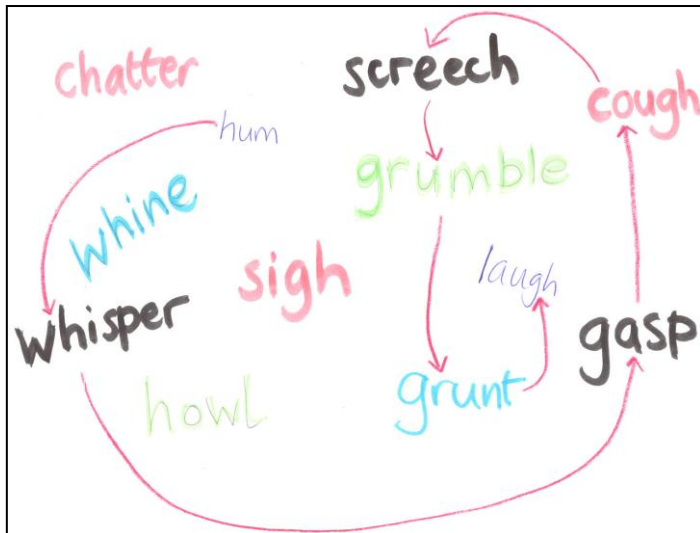 chatter
screech
cough
hum
grumble
whine
sigh
laugh
whisper
gasp
howl
grunt